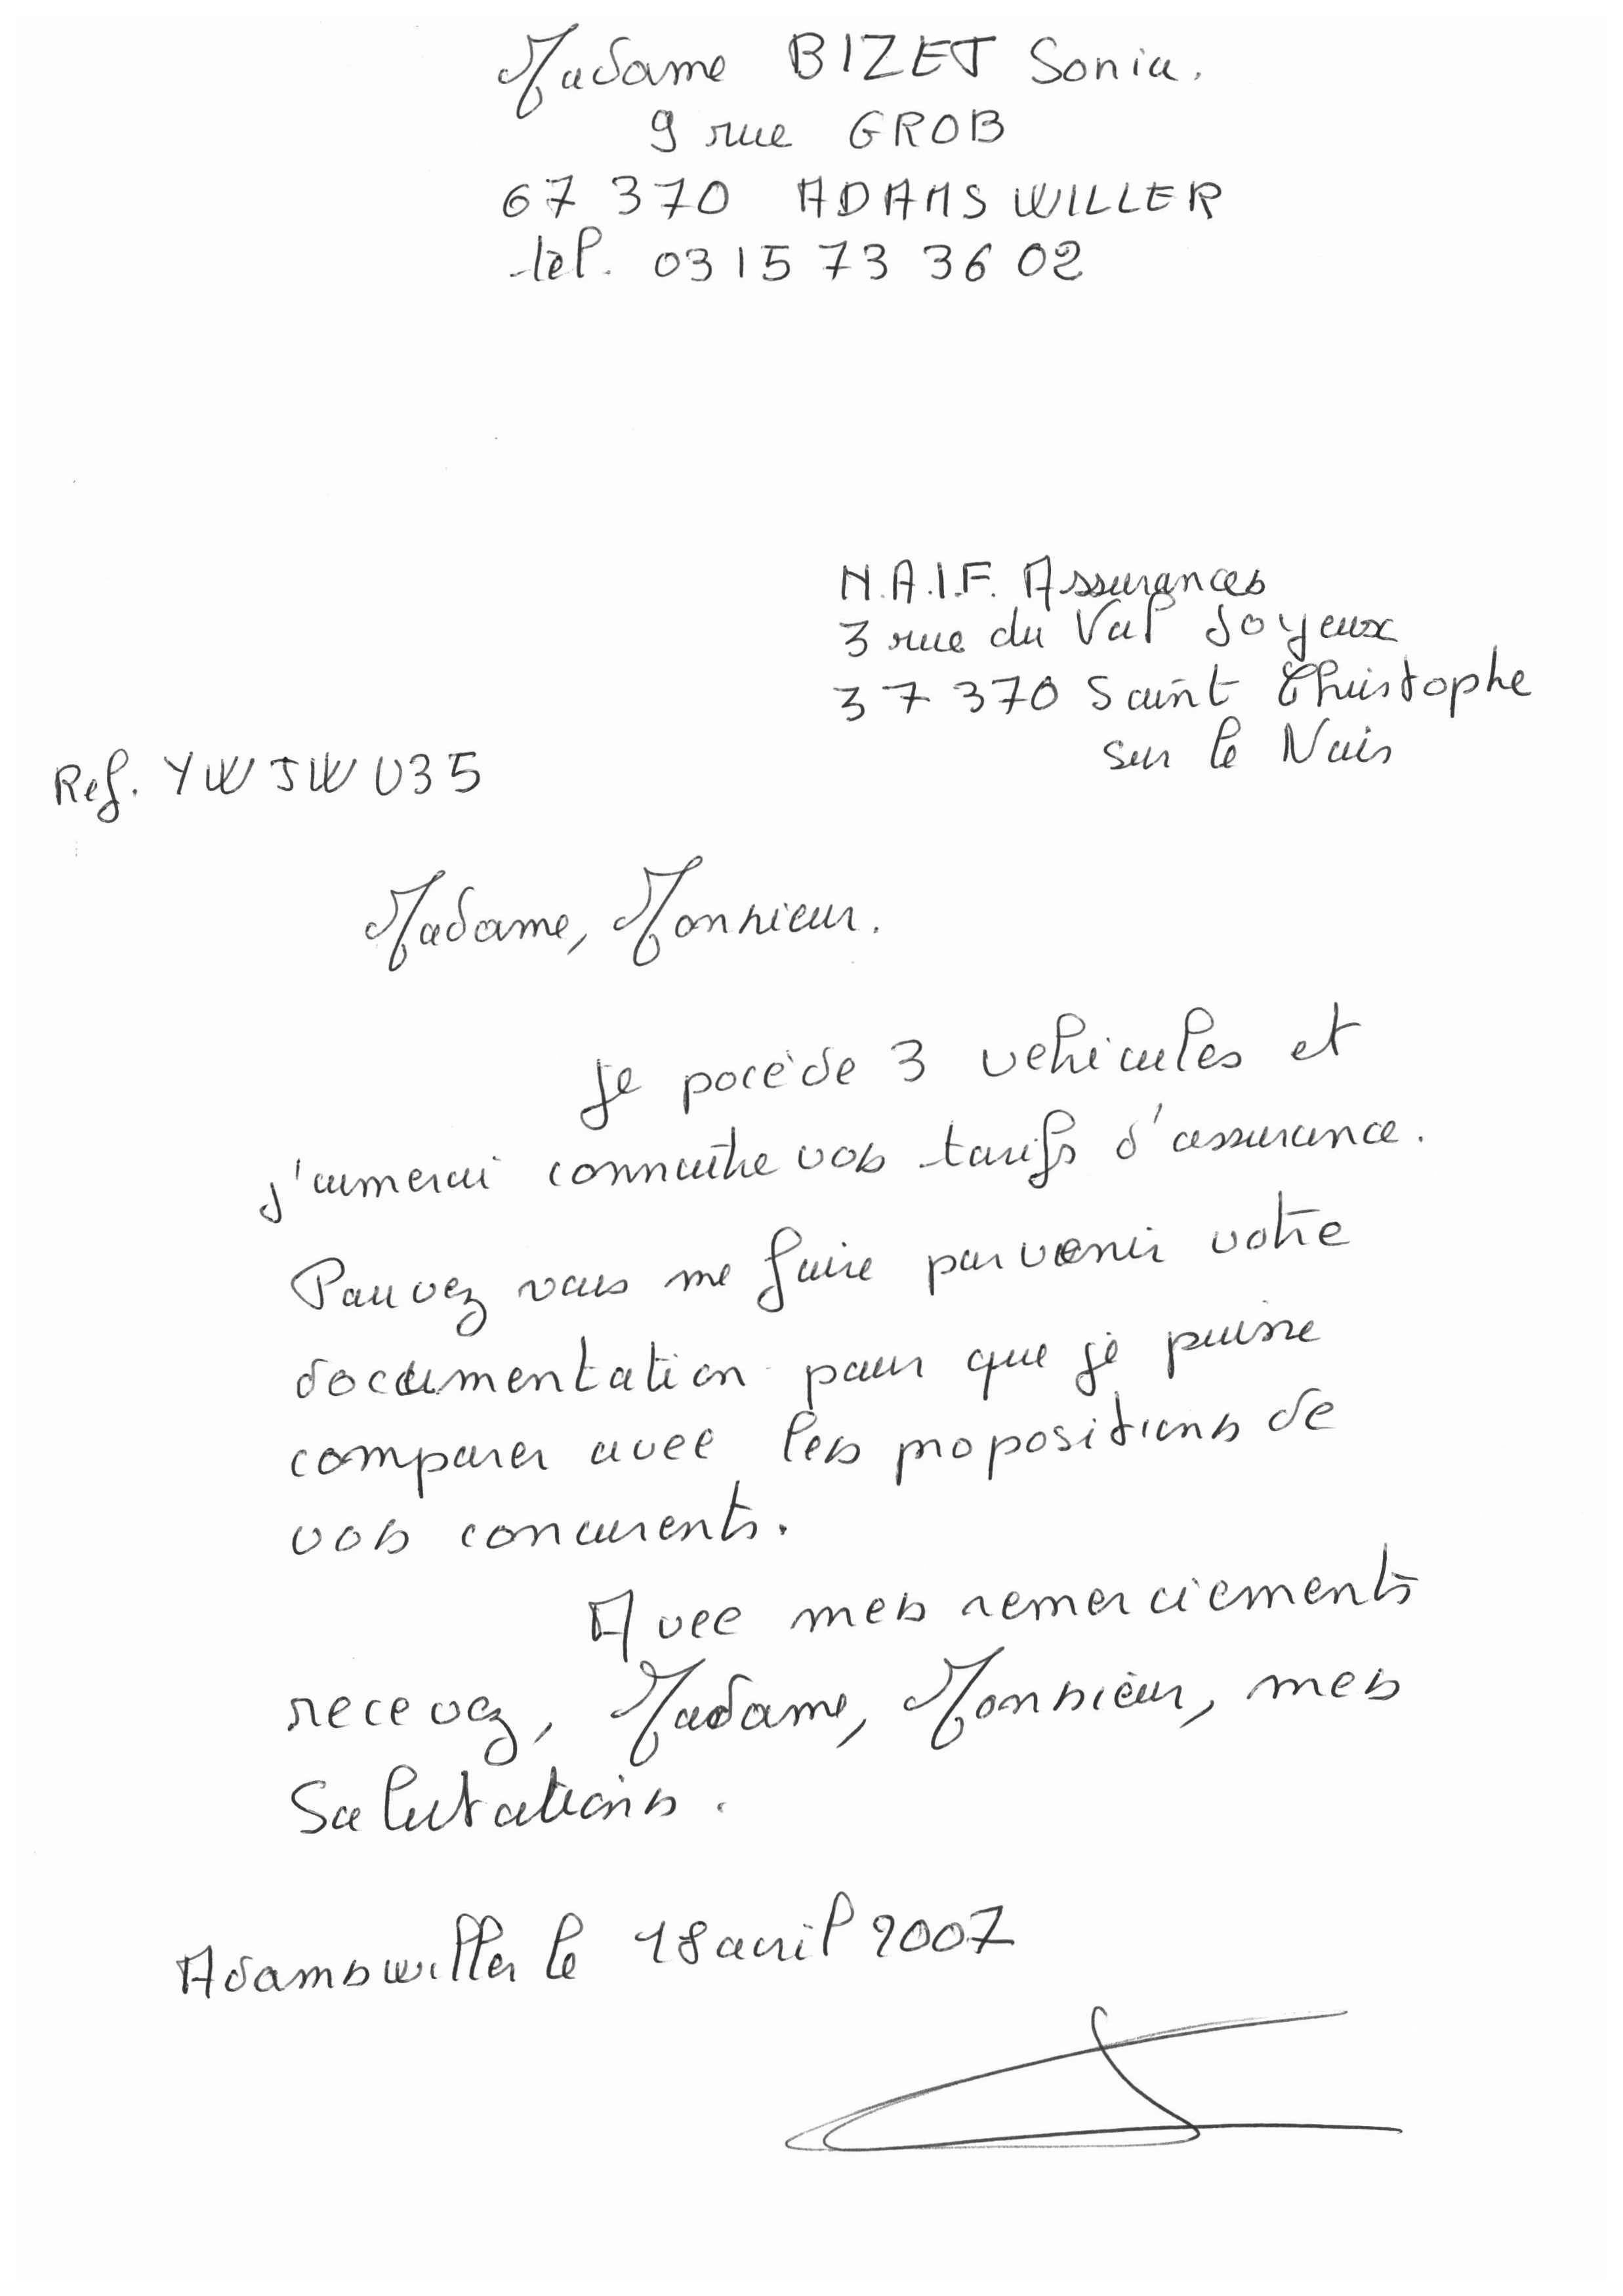 Madame BIZET Sonia.
9 rue GROB
67 370 ADAMSWILLER
tèl. 03 15 73 36 02
N.A.I.F. Assurances
3 rue du Val Joyeux
37 370 Saint Christophe
sur le Nais
Ref. YWJWU35
Madame, Monsieur.
Je pocède 3 vehicules et
j'aimerai connaitre vos tarifs d'assurance.
Pouvez vous me faire parvenir votre
documentation pour que je puisse
comparer avec les propositions de
vos concurents.
Avec mes remerciements
recevez, Madame, Monsieur, mes
Salutations.
Adamswiller le 18 avril 2007